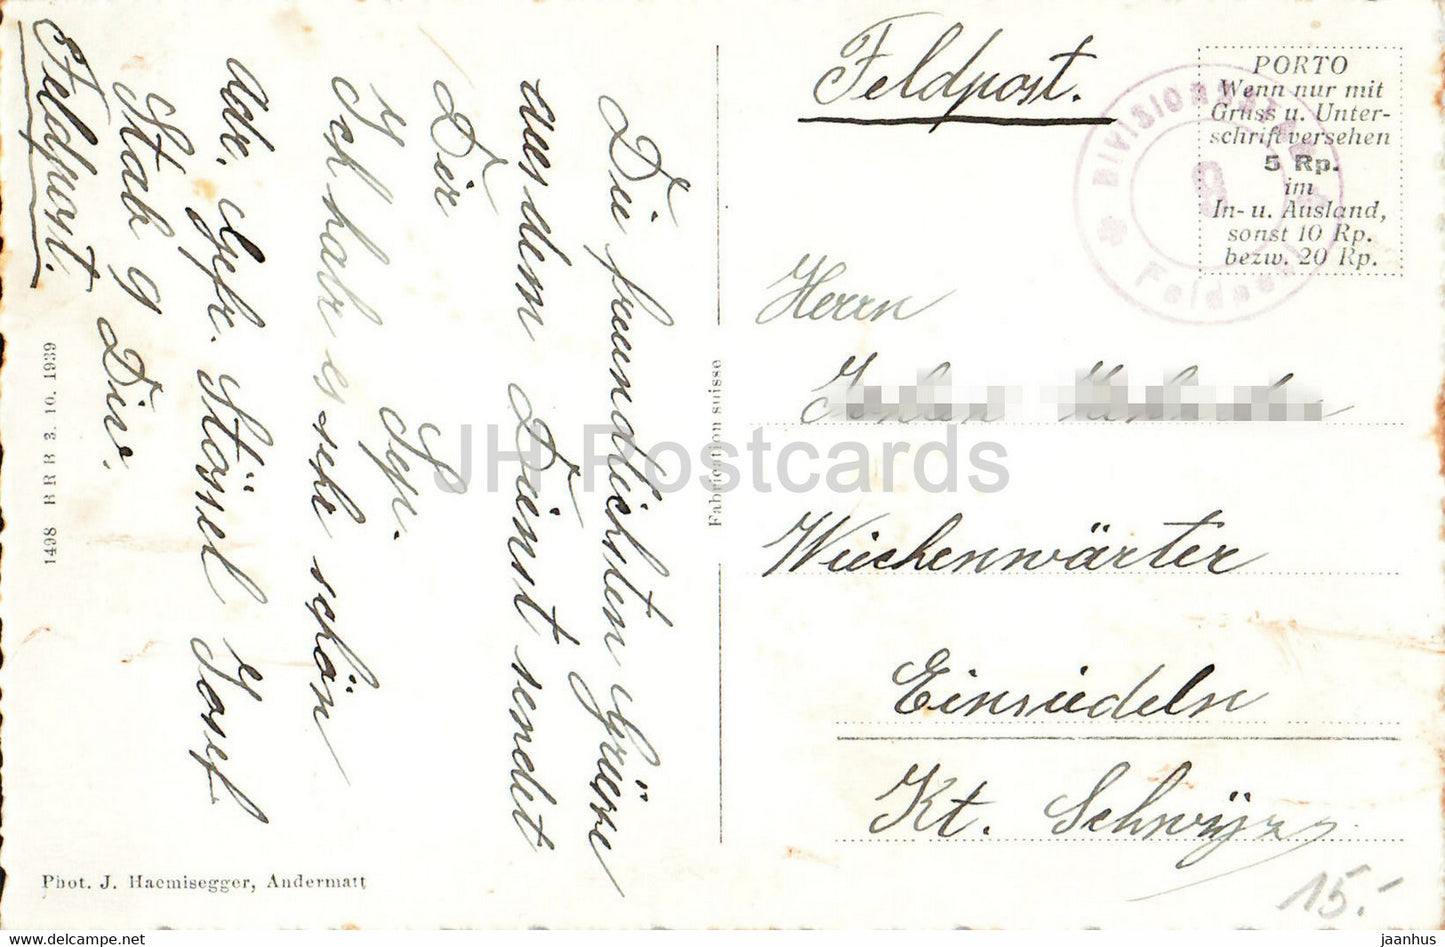 Feldpost.
PORTO
Wenn nur mit
Gruss u. Unter-
schrift versehen
5 Rp.
im
In- u. Ausland,
sonst 10 Rp.
bezw. 20 Rp.
DIVISION
8
Feldpost
Herrn
Wiechenwärter
Einsiedeln
Kt. Schwyz
15.-
Die freundlichsten Grüsse
aus dem Dienst sendet
Dir Sepi.
Ich habe es sehr schön
Adr. Gefr. Stössel Josef
Stab 9 Div.
Feldpost.
1498 BRB 3. 10. 1939
Fabrication suisse
Phot. J. Haemisegger, Andermatt
JH Postcards
jaanhus
www.delcampe.net